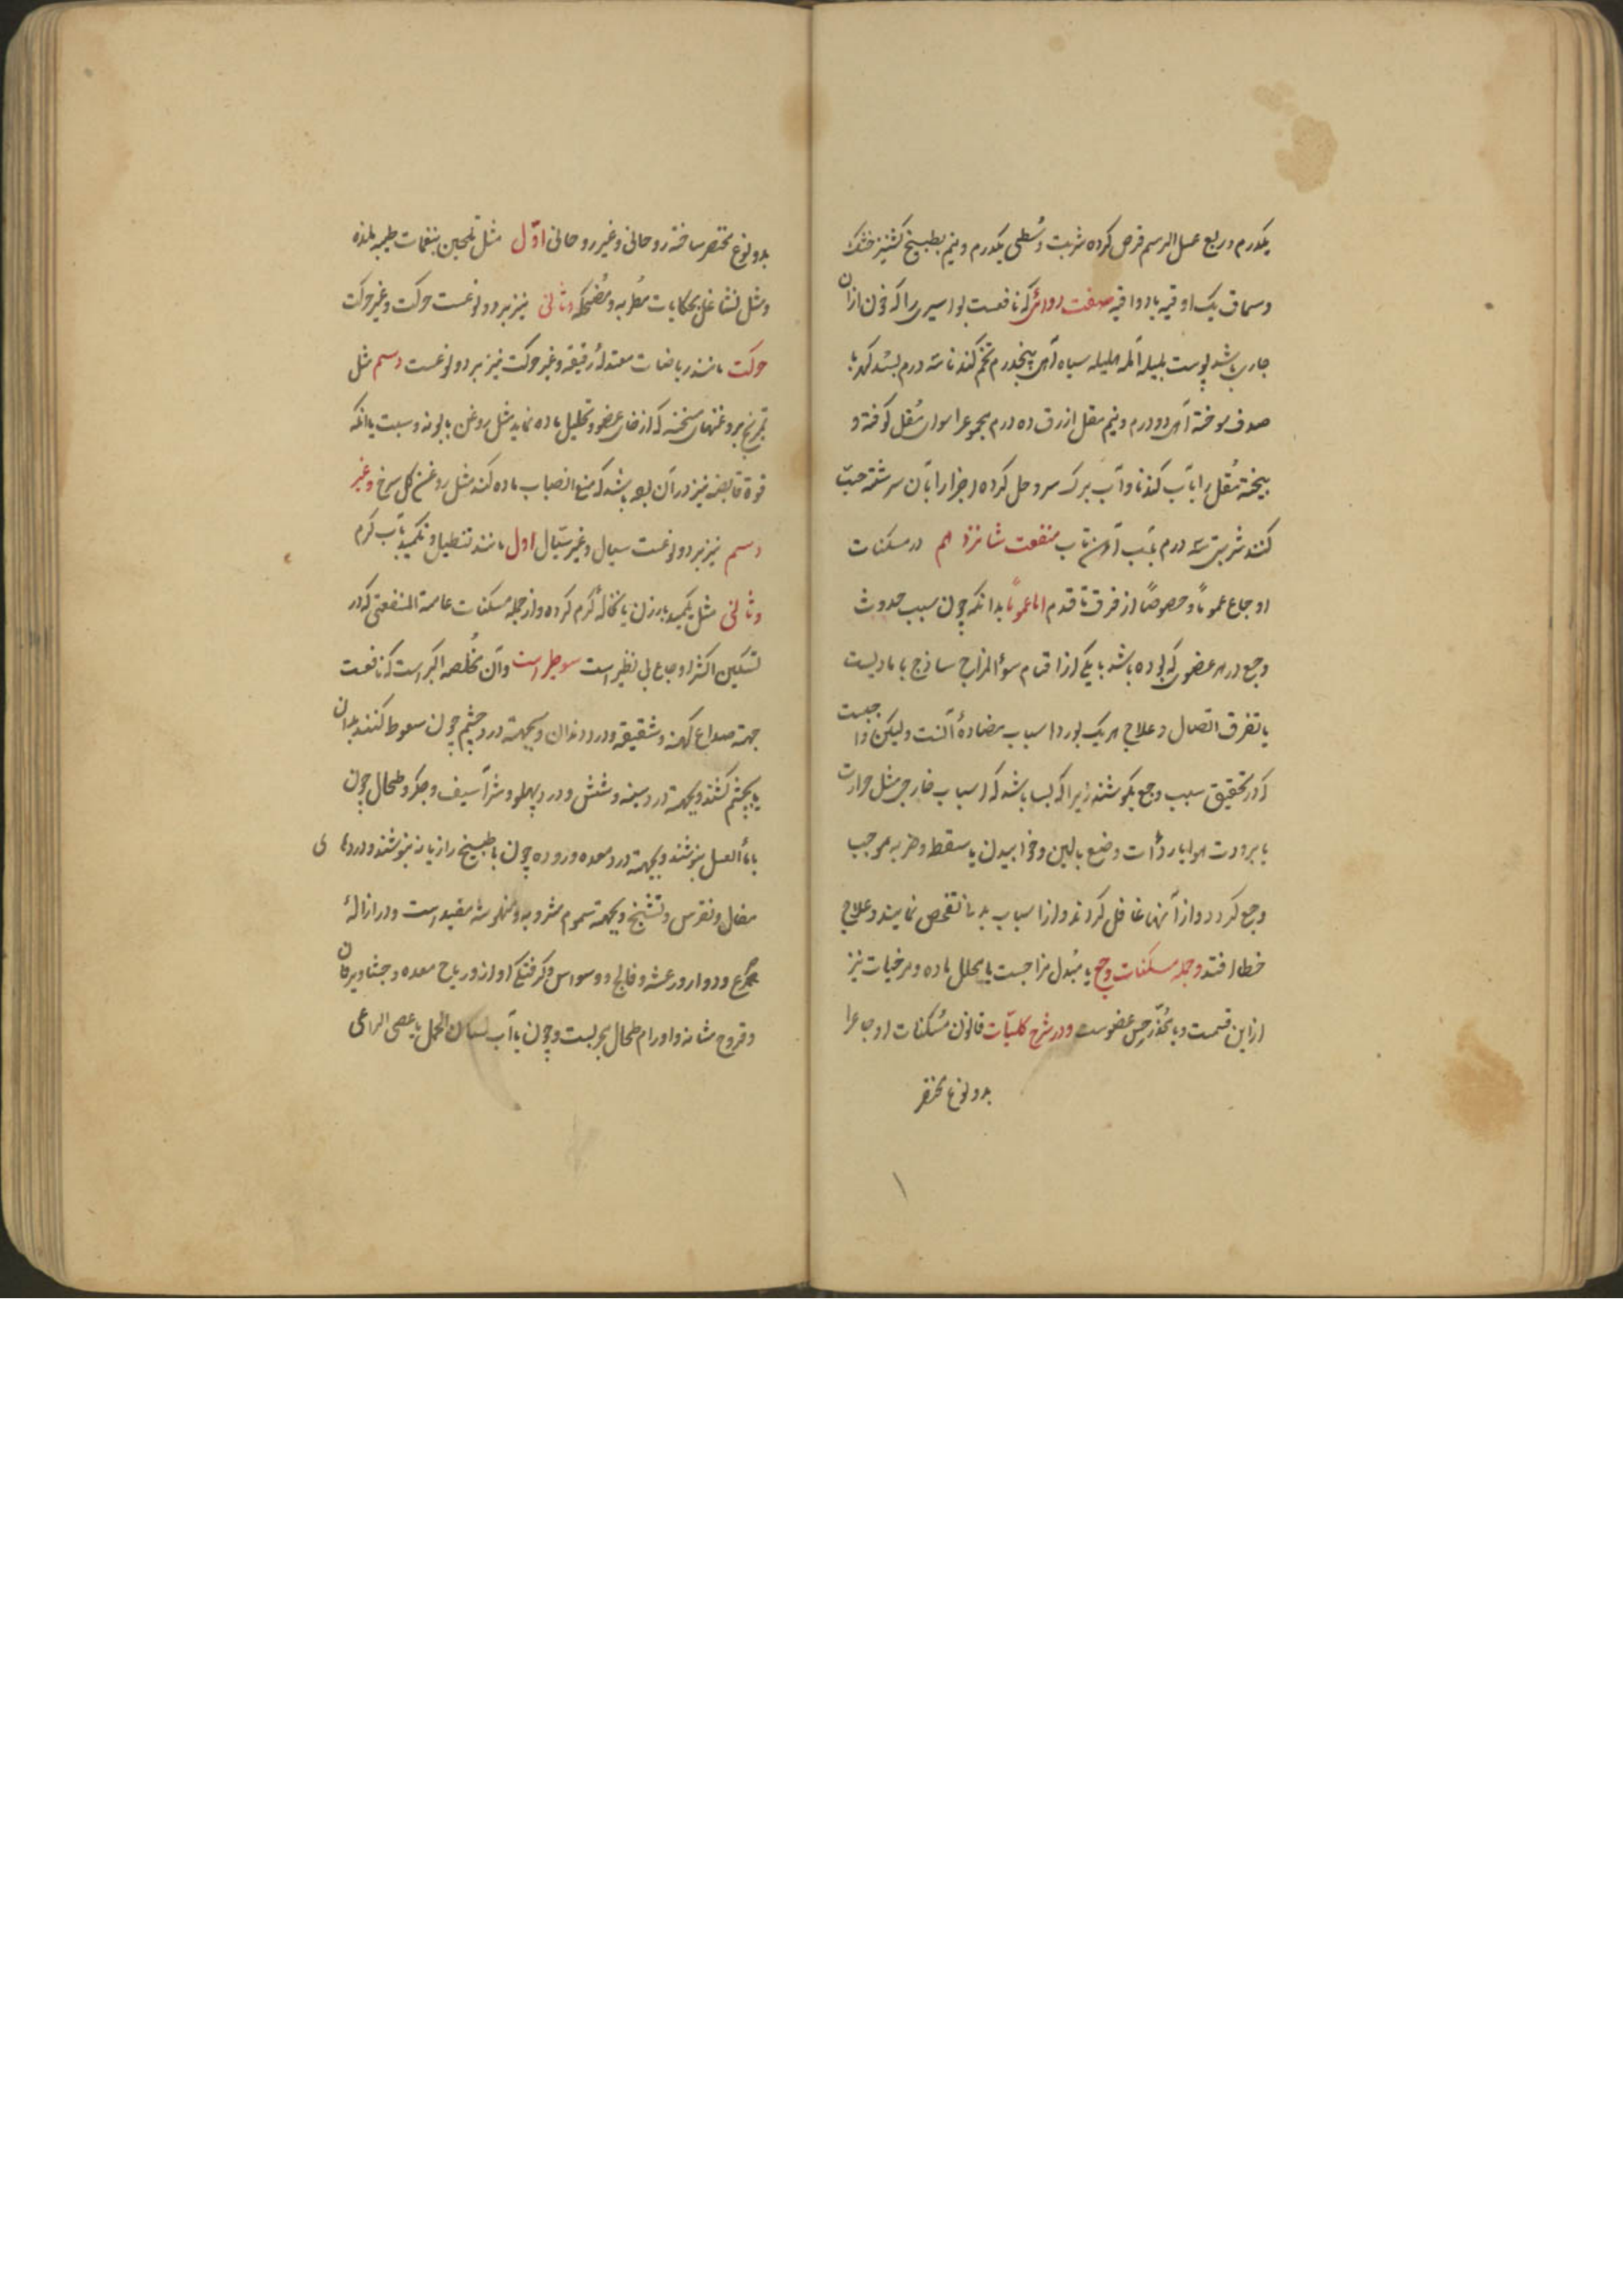 یکدرم و ربع عسل الرسم قرص کرده شربت وُسطی یکدرم و نیم بطبیخ کشنیز خشک
و سماق یک اوقیه یا دو اوقیه صفت دوائی که نافعست بواسیری را که خون ازان
جاری باشد پوست بلیله آمله هلیله سیاه پنجدرم تخم کندنا سه درم بسد کهربا
صدف سوخته دو درم و نیم مقل ازرق ده درم مجموع را سوای مُقل کوفته و
بیخته مُقل را بآب کندنا و آب برک سرو حل کرده اجزا را بآن سرشته حبّ
کنند شربتی سه درم بآب آهن تاب منفعت شانزدهم در مسکنات
اوجاع عموماً و خصوصاً از فرق تا قدم اما عموماً بدانکه چون سبب حدوث
وجع در هر عضوی که بوده باشد یا یکی از اقسام سوٴ المزاج ساذج یا مادیست
یا تفرق اتصال و علاج هر یک بورد اسباب مضادهٔ آنست ولیکن واجبست
که در تحقیق سبب وجع بکوشند زیرا که بسا باشد که اسباب خارجی مثل حرارت
یا برودت هوا یا ردأت وضع بالین و خوابیدن یا سقطه و ضربه موجب
وجع کردد و از آنها غافل کردند و از اسباب بدنی تفحص نمایند و علاج
خطا افتد و جمله مسکنات وجع یا مُبدل مزاجست یا محلل ماده و مرخیات نیز
ازاین قسمت و یا مُخدّر حِس عضوست و در شرح کلیّات قانون مُسکنات اوجاع را
بدو نوع مختصر
بدو نوع مختصر ساخته روحانی و غیر روحانی اوّل مثل تلحین بنغمات طیبه ملذه
و مثل تشاغل بحکایات مُطربه و مُضحکه و ثانی نیز بر دو نوعست حرکت و غیر حرکت
حرکت مانند ریاضات معتدلهٔ رقیقه و غیر حرکت نیز بر دو نوعست دسم مثل
تمریخ بروغنهای سخنه که ارخای عضو و تحلیل ماده نماید مثل روغن بابونه و سبت یا انکه
قوة قابضه نیز در آن بوده باشد که منع انصباب ماده کند مثل روغن کل سرخ و غیر
دسم نیز بر دو نوعست سیال و غیر سیّال اول مانند تنطیل و تکمید بآب کرم
و ثانی مثل تکمید بارزن یا نخالهٔ کرم کرده و از جمله مسکنات عامة المنفعتی که در
تسکین اکثر اوجاع بی نظیر است سوطیرا است و آن مُخلصه اکبر است که نافعست
جهة صداع کهنه و شقیقه و درد دندان و بجهة درد چشم چون سعوط کنند بدان
یا بچشم کشند و بجهة درد سینه و شش و درد پهلو و شراسیف و جکر و طحال چون
بمأ العسل بنوشند و بجهة درد معده و روده چون با طبیخ رازیانه بنوشند و دردهای
مفاصل و نقرس و تشنج و بجهة سموم مشروبه و منهوشه مفید است و در ازالهٔ
صرع و دوار و رعشه و فالج و وسواس و کرفتکی اواز و ریاح معده و جشا و یرقان
و قروح مثانه و اورام طحال مجربست و چون با آب لسان الحمل یا عصی الراعی